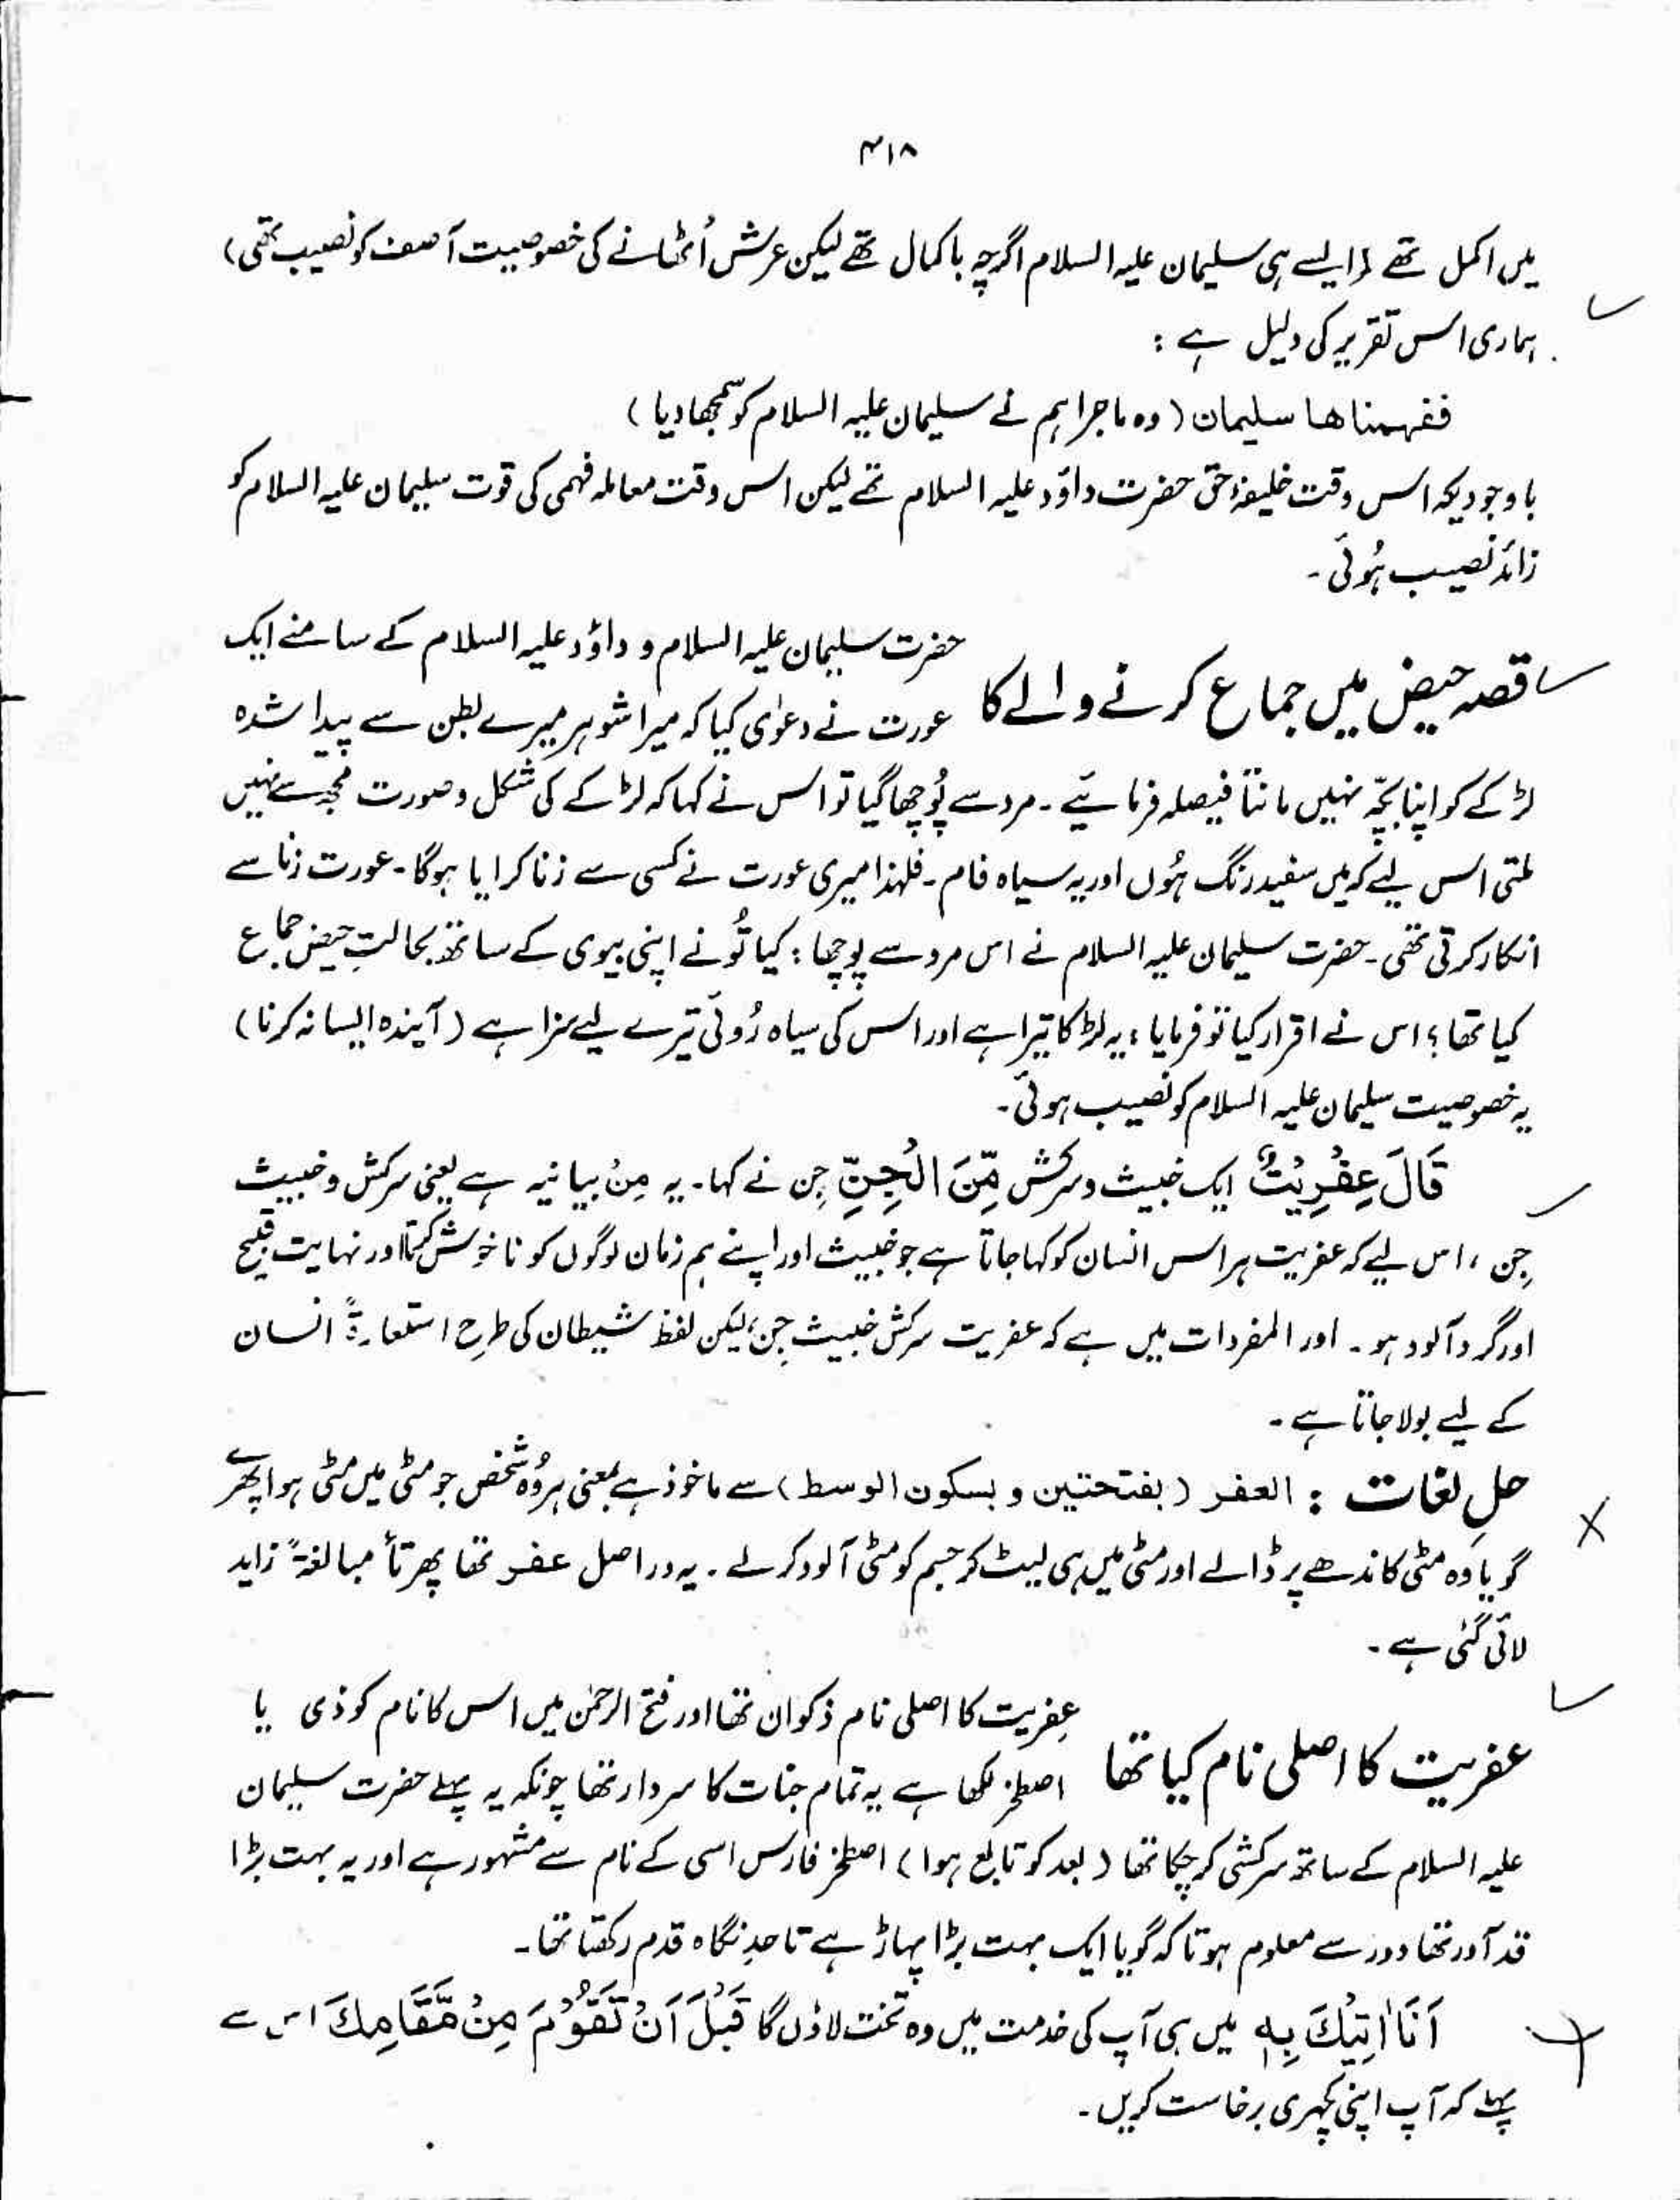 ۴۱۸
میں اکمل تھے (ایسے ہی سلیمان علیہ السلام اگرچہ باکمال تھے لیکن عرش اُٹھانے کی خصوصیت آصف کو نصیب تھی)
ہماری اس تقریر کی دلیل ہے :
ففہمناھا سلیمان (وہ ماجرا ہم نے سلیمان علیہ السلام کو سمجھا دیا)
باوجودیکہ اس وقت خلیفۂ حق حضرت داؤد علیہ السلام تھے لیکن اس وقت معاملہ فہمی کی قوت سلیمان علیہ السلام کو
زائد نصیب ہُوئی۔
قصہ حیض میں جماع کرنے والے کا
حضرت سلیمان علیہ السلام و داؤد علیہ السلام کے سامنے ایک
عورت نے دعوٰی کیا کہ میرا شوہر میرے بطن سے پیدا شدہ
لڑکے کو اپنا بچّہ نہیں مانتا فیصلہ فرمائیے۔ مرد سے پُوچھا گیا تو اس نے کہا کہ لڑکے کی شکل و صورت مجھ سے نہیں
ملتی اس لیے کہ میں سفید رنگ ہُوں اور یہ سیاہ فام۔ فلہذا میری عورت نے کسی سے زنا کرایا ہوگا۔ عورت زنا سے
انکار کرتی تھی۔ حضرت سلیمان علیہ السلام نے اس مرد سے پوچھا : کیا تُو نے اپنی بیوی کے ساتھ بحالتِ حیض جماع
کیا تھا؟ اس نے اقرار کیا تو فرمایا : یہ لڑکا تیرا ہے اور اس کی سیاہ رُوئی تیرے لیے سزا ہے (آیندہ ایسا نہ کرنا)
یہ خصوصیت سلیمان علیہ السلام کو نصیب ہوئی۔
قَالَ عِفْرِيْتٌ ایک خبیث و سرکش مِّنَ الْجِنِّ جِن نے کہا۔ یہ مِنْ بیانیہ ہے یعنی سرکش و خبیث
جِن ، اس لیے کہ عفریت ہر اس انسان کو کہا جاتا ہے جو خبیث اور اپنے ہم زمان لوگوں کو ناخوش کرتا اور نہایت قبیح
اور گرد آلود ہو۔ اور المفردات میں ہے کہ عفریت سرکش خبیث جِن، لیکن لفظ شیطان کی طرح استعارۃً انسان
کے لیے بولا جاتا ہے۔
حلِ لغات : العفر (بفتحتین و بسکون الوسط) سے ماخوذ ہے بمعنی ہر وُہ شخص جو مٹی میں مٹی ہوا پھرے
گویا وُہ مٹی کاندھے پر ڈالے اور مٹی میں ہی لیٹ کر جسم کو مٹی آلود کرلے۔ یہ دراصل عفر تھا پھر تأ مبالغۃً زاید
لائی گئی ہے۔
عفریت کا اصلی نام کیا تھا
عِفریت کا اصلی نام ذکوان تھا اور فتح الرحمٰن میں اس کا نام کوذی یا
اصطخز لکھا ہے یہ تمام جنات کا سردار تھا چونکہ یہ پہلے حضرت سلیمان
علیہ السلام کے ساتھ سرکشی کر چکا تھا (بعد کو تابع ہوا) اصطخز فارس اسی کے نام سے مشہور ہے اور یہ بہت بڑا
قد آور تھا دور سے معلوم ہوتا کہ گویا ایک بہت بڑا پہاڑ ہے تا حدِ نگاہ قدم رکھتا تھا۔
اَنَا اٰتِيْكَ بِهٖ میں ہی آپ کی خدمت میں وہ تخت لاؤں گا قَبْلَ اَنْ تَقُوْمَ مِنْ مَّقَامِكَ اس سے
پہلے کہ آپ اپنی کچہری برخاست کریں۔